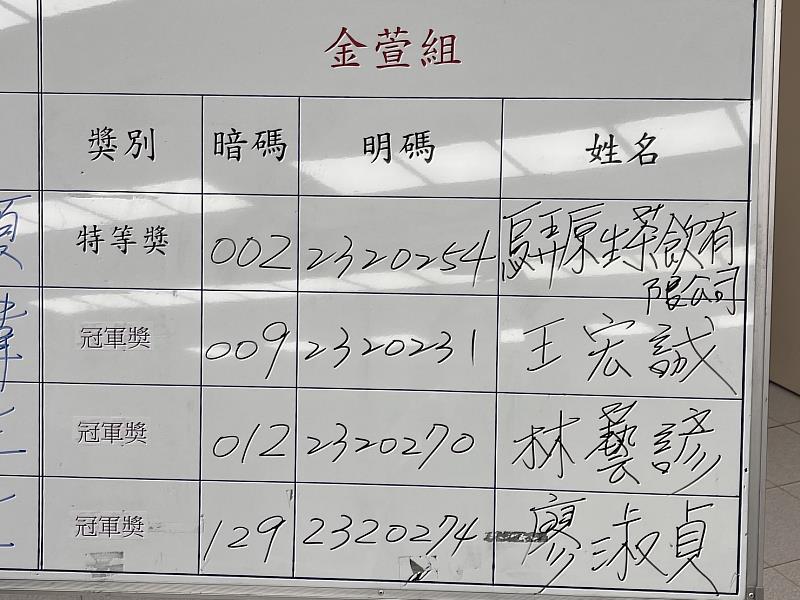 金萱組
獎別 暗碼 明碼 姓名
特等獎 002 2320254 原生茶飲有
限公司
冠軍獎 009 2320231 王宏誠
冠軍獎 012 2320270 林藝諺
冠軍獎 129 2320274 廖淑貞